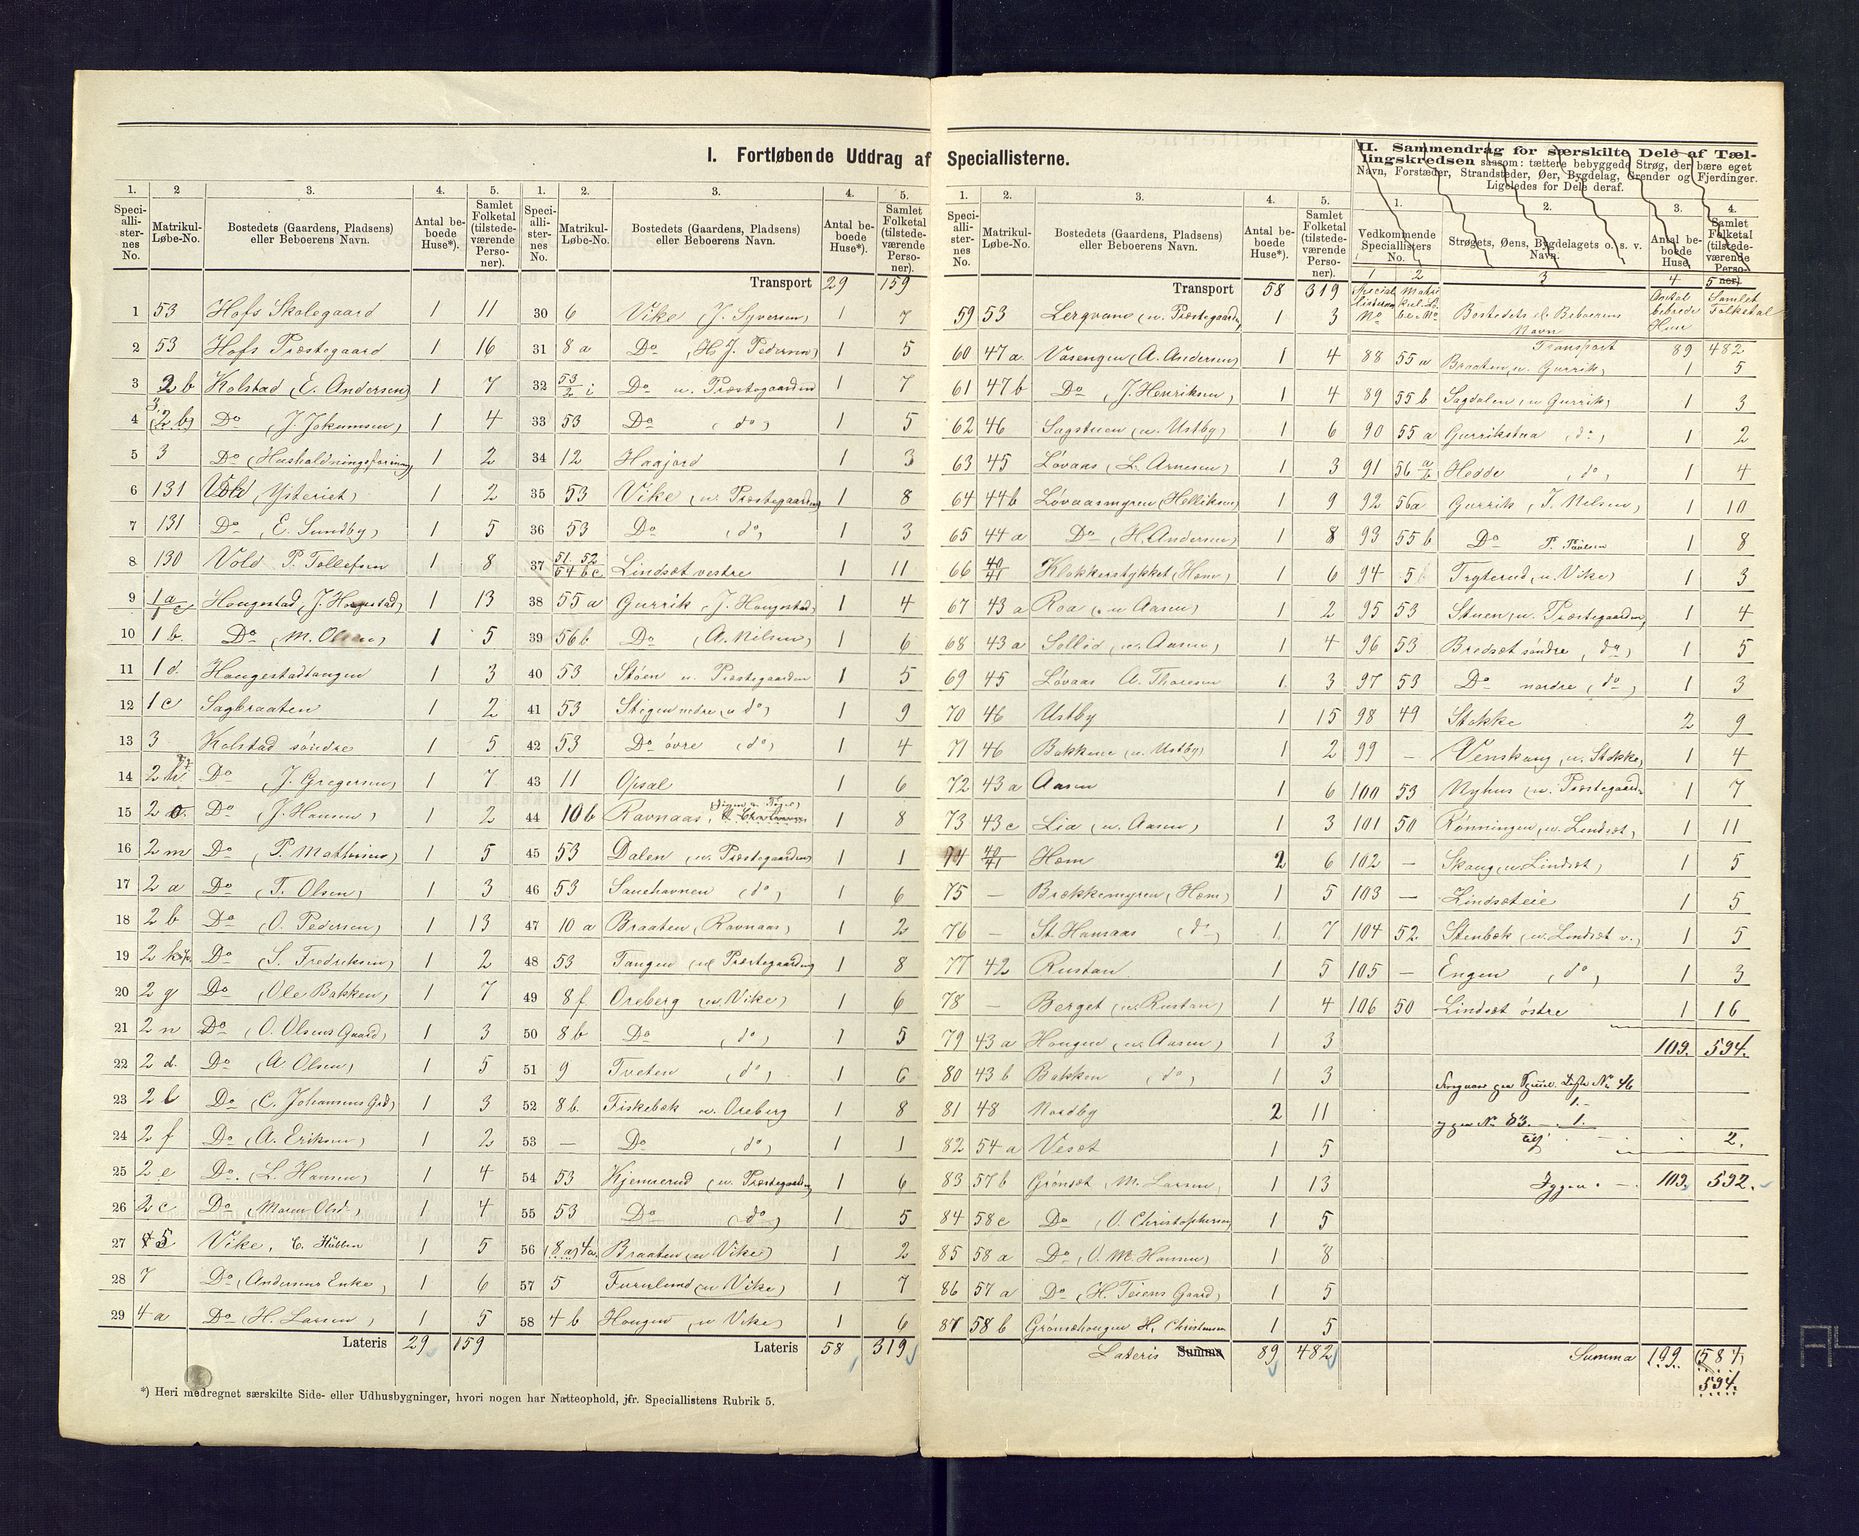 I. Fortløbende Uddrag af Speciallisterne.
1. 2. 3. 4. 5.
Speciallisternes No. Matrikul-Løbe-No. Bostedets (Gaardens, Pladsens) eller Beboerens Navn. Antal beboede Huse*). Samlet Folketal (tilstedeværende Personer).
1 53 Hofs Skolegaard 1 11
2 53 Hofs Præstegaard 1 16
3 2b Kolstad (E. Andersen) 1 7
4 3. (2.b) Do (J. Jokumsen) 1 4
5 3 Do (Husholdningsforening) 1 2
6 131 Vold (Ysteriet) 1 2
7 131 Do (E. Sundby) 1 5
8 130 Vold P. Tollefsen 1 8
9 1a/1c Hougestad (J. Hougestad) 1 13
10 1b. Do (M. Olsen) 1 5
11 1d. Hougestadtangen 1 3
12 1c Sagbraaten 1 2
13 3 Kolstad søndre 1 5
14 2h Do (J. Gregersen) 1 7
15 2o. Do (J. Hansen) 1 2
16 2m Do (P. Mathisen) 1 5
17 2a Do (T. Olsen) 1 3
18 2b Do (O. Pedersen) 1 13
19 2k Do (S. Fredriksen) 1 2
20 2g Do (Ole Bakken) 1 7
21 2n Do (O. Olsens Gaard) 1 3
22 2d. Do (A. Olsen) 1 5
23 2l Do (C. Johansens Grd) 1 3
24 2f Do (A. Eriksen) 1 2
25 2e Do (L. Hansen) 1 4
26 2c Do (Maren Olsd.) 1 4
27 5 Vike, C. Hübben 1 5
28 7 Do (Andersens Enke) 1 6
29 4a Do (H. Larsen) 1 5
Lateris 29 159
1. 2. 3. 4. 5.
Speciallisternes No. Matrikul-Løbe-No. Bostedets (Gaardens, Pladsens) eller Beboerens Navn. Antal beboede Huse*). Samlet Folketal (tilstedeværende Personer).
Transport 29 159
30 6 Vike (J. Syversen) 1 7
31 8a Do (H. J. Pedersen) 1 5
32 53/2 i Do u. Præstegaarden 1 7
33 53 Do (do) 1 5
34 12 Haajord 1 3
35 53 Vike (u. Præstegaarden) 1 8
36 53 Do (do) 1 3
37 51. 52/54 b c Lindsæt vestre 1 11
38 55a Gurrik (J. Hougestad) 1 4
39 56b Do (A. Nilsen) 1 6
40 53 Støen u. Præstegaarden 1 5
41 53 Stigen nedre (u do) 1 9
42 53 Do øvre (do) 1 4
43 11 Opsal 1 6
44 10b Ravnaas 1 8
45 53 Dalen (u. Præstegaarden) 1 1
46 53 Sanehavnen (do) 1 6
47 10a Braaten (Ravnaas) 1 2
48 53 Tangen u/ Præstegaarden 1 8
49 8f Oreberg (u Vike) 1 6
50 8b Do (do) 1 5
51 9 Tveten (do) 1 6
52 8b. Fiskebæk u. Oreberg 1 8
53 — Do (do) 1 1
54 53 Kjennerud (u. Præstegaarden) 1 6
55 53 Do (do) 1 5
56 (8a) 4a. Braaten (u Vike) 1 2
57 5 Furulund (u Vike) 1 7
58 4b Hougen (u Vike) 1 6
Lateris 58 319
*) Heri medregnet særskilte Side- eller Udhusbygninger, hvori nogen har Natteophold, jfr. Speciallistens Rubrik 5.
1. 2. 3. 4. 5.
Speciallisternes No. Matrikul-Løbe-No. Bostedets (Gaardens, Pladsens) eller Beboerens Navn. Antal beboede Huse*). Samlet Folketal (tilstedeværende Personer).
Transport 58 319
59 53 Lergvane (u. Præstegaarden) 1 3
60 47a Vasengen (A. Andersen) 1 4
61 47b Do (J. Henriksen) 1 4
62 46 Sagstuen (u. Ustby) 1 6
63 45 Løvaas (L. Arnesen) 1 3
64 44b Løvaasmyren (Helliksen) 1 9
65 44a Do (H. Andersen) 1 8
66 40/41 Klokkerstykket (Hæm) 1 6
67 43a Roa (u Aasen) 1 2
68 43a Sollid (u. Aasen) 1 4
69 45 Løvaas A. Thoresen 1 3
70 46 Ustby 1 15
71 46 Bakkene (u. Ustby) 1 2
72 43a Aasen 1 6
73 43c Lia (u. Aasen) 1 3
74 40/41 Hæm 2 6
75 — Brækkemyren (Hæm) 1 5
76 — St. Hansaas (do) 1 7
77 42 Rustan 1 5
78 — Berget (u. Rustan) 1 4
79 43a Hougen (u. Aasen) 1 3
80 43b Bakken (do) 1 3
81 48 Nordby 2 11
82 54a Vesæt 1 5
83 57b Grønsæt M. Larsen 1 13
84 58c Do (O. Christophersen) 1 5
85 58a Do (O. M. Hansen) 1 8
86 57a Do (H. Teiens Gaard) 1 5
87 58b Grønsæhougen H. Christensen 1 5
Lateris Summa 89 482
II. Sammendrag for særskilte Dele af Tællingskredsen saasom: tættere bebyggede Strøg, der bære eget Navn, Forstæder, Strandsteder, Øer, Bygdelag, Grender og Fjerdinger. Ligeledes for Dele deraf.
1. 2. 3. 4.
Vedkommende Speciallisters No. Strøgets, Øens, Bygdelagets o. s. v. Navn. Antal beboede Huse. Samlet Folketal (tilstedeværende Personer).
1 2 3 4 5
Speciallisternes No Matrikel-Lø-be-No Bostedets el. Beboerens Navn Antal beboede Huse Samlet Folketal
Transport 89 482
88 55a Braaten u. Gurrik 1 5
89 55b Sagdalen (u Gurrik) 1 3
90 55a Gurrikstua (do) 1 2
91 56 a/b Hedde do 1 4
92 56a Gurrik (T. Nilsen) 1 10
93 55b Do P. Paulsen 1 8
94 5 Tryterud (u. Vike) 1 3
95 53 Stuen (u. Præstegaarden) 1 4
96 53 Bredsæt søndre (do) 1 5
97 53 Do nordre (do) 1 3
98 49 Stokke 2 9
99 — Venskaug (u. Stokke) 1 4
100 53 Nyhus (u. Præstegaarden) 1 7
101 50 Rønningen (u. Lindsæt) 1 11
102 — Skaug (u Lindsæt) 1 5
103 — Lindsæteie 1 5
104 52 Stenbæk (u. Lindsæt v.) 1 5
105 — Engen (do) 1 3
106 50 Lindsæt østre 1 16
109. 594.
Liste No 46
1.
No 83. — 1.
2.
Igjen — 109. 592.
Summa 109. (587)
594.